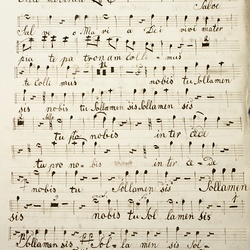 Salve
Sal ve o Mari a Dei vivi mater
pia te pa tronam colli mus
te colli mus nobis tu Sollamen
sis nobis tu Sollamen sis Sollamen sis
tu pro nobis inter cedi
tu pro no bis inter ce de
nobis tu Sollamen sis Sollamen
sis nobis tu Sol lamen sis
Sollamen sis Sol la men sis Sol